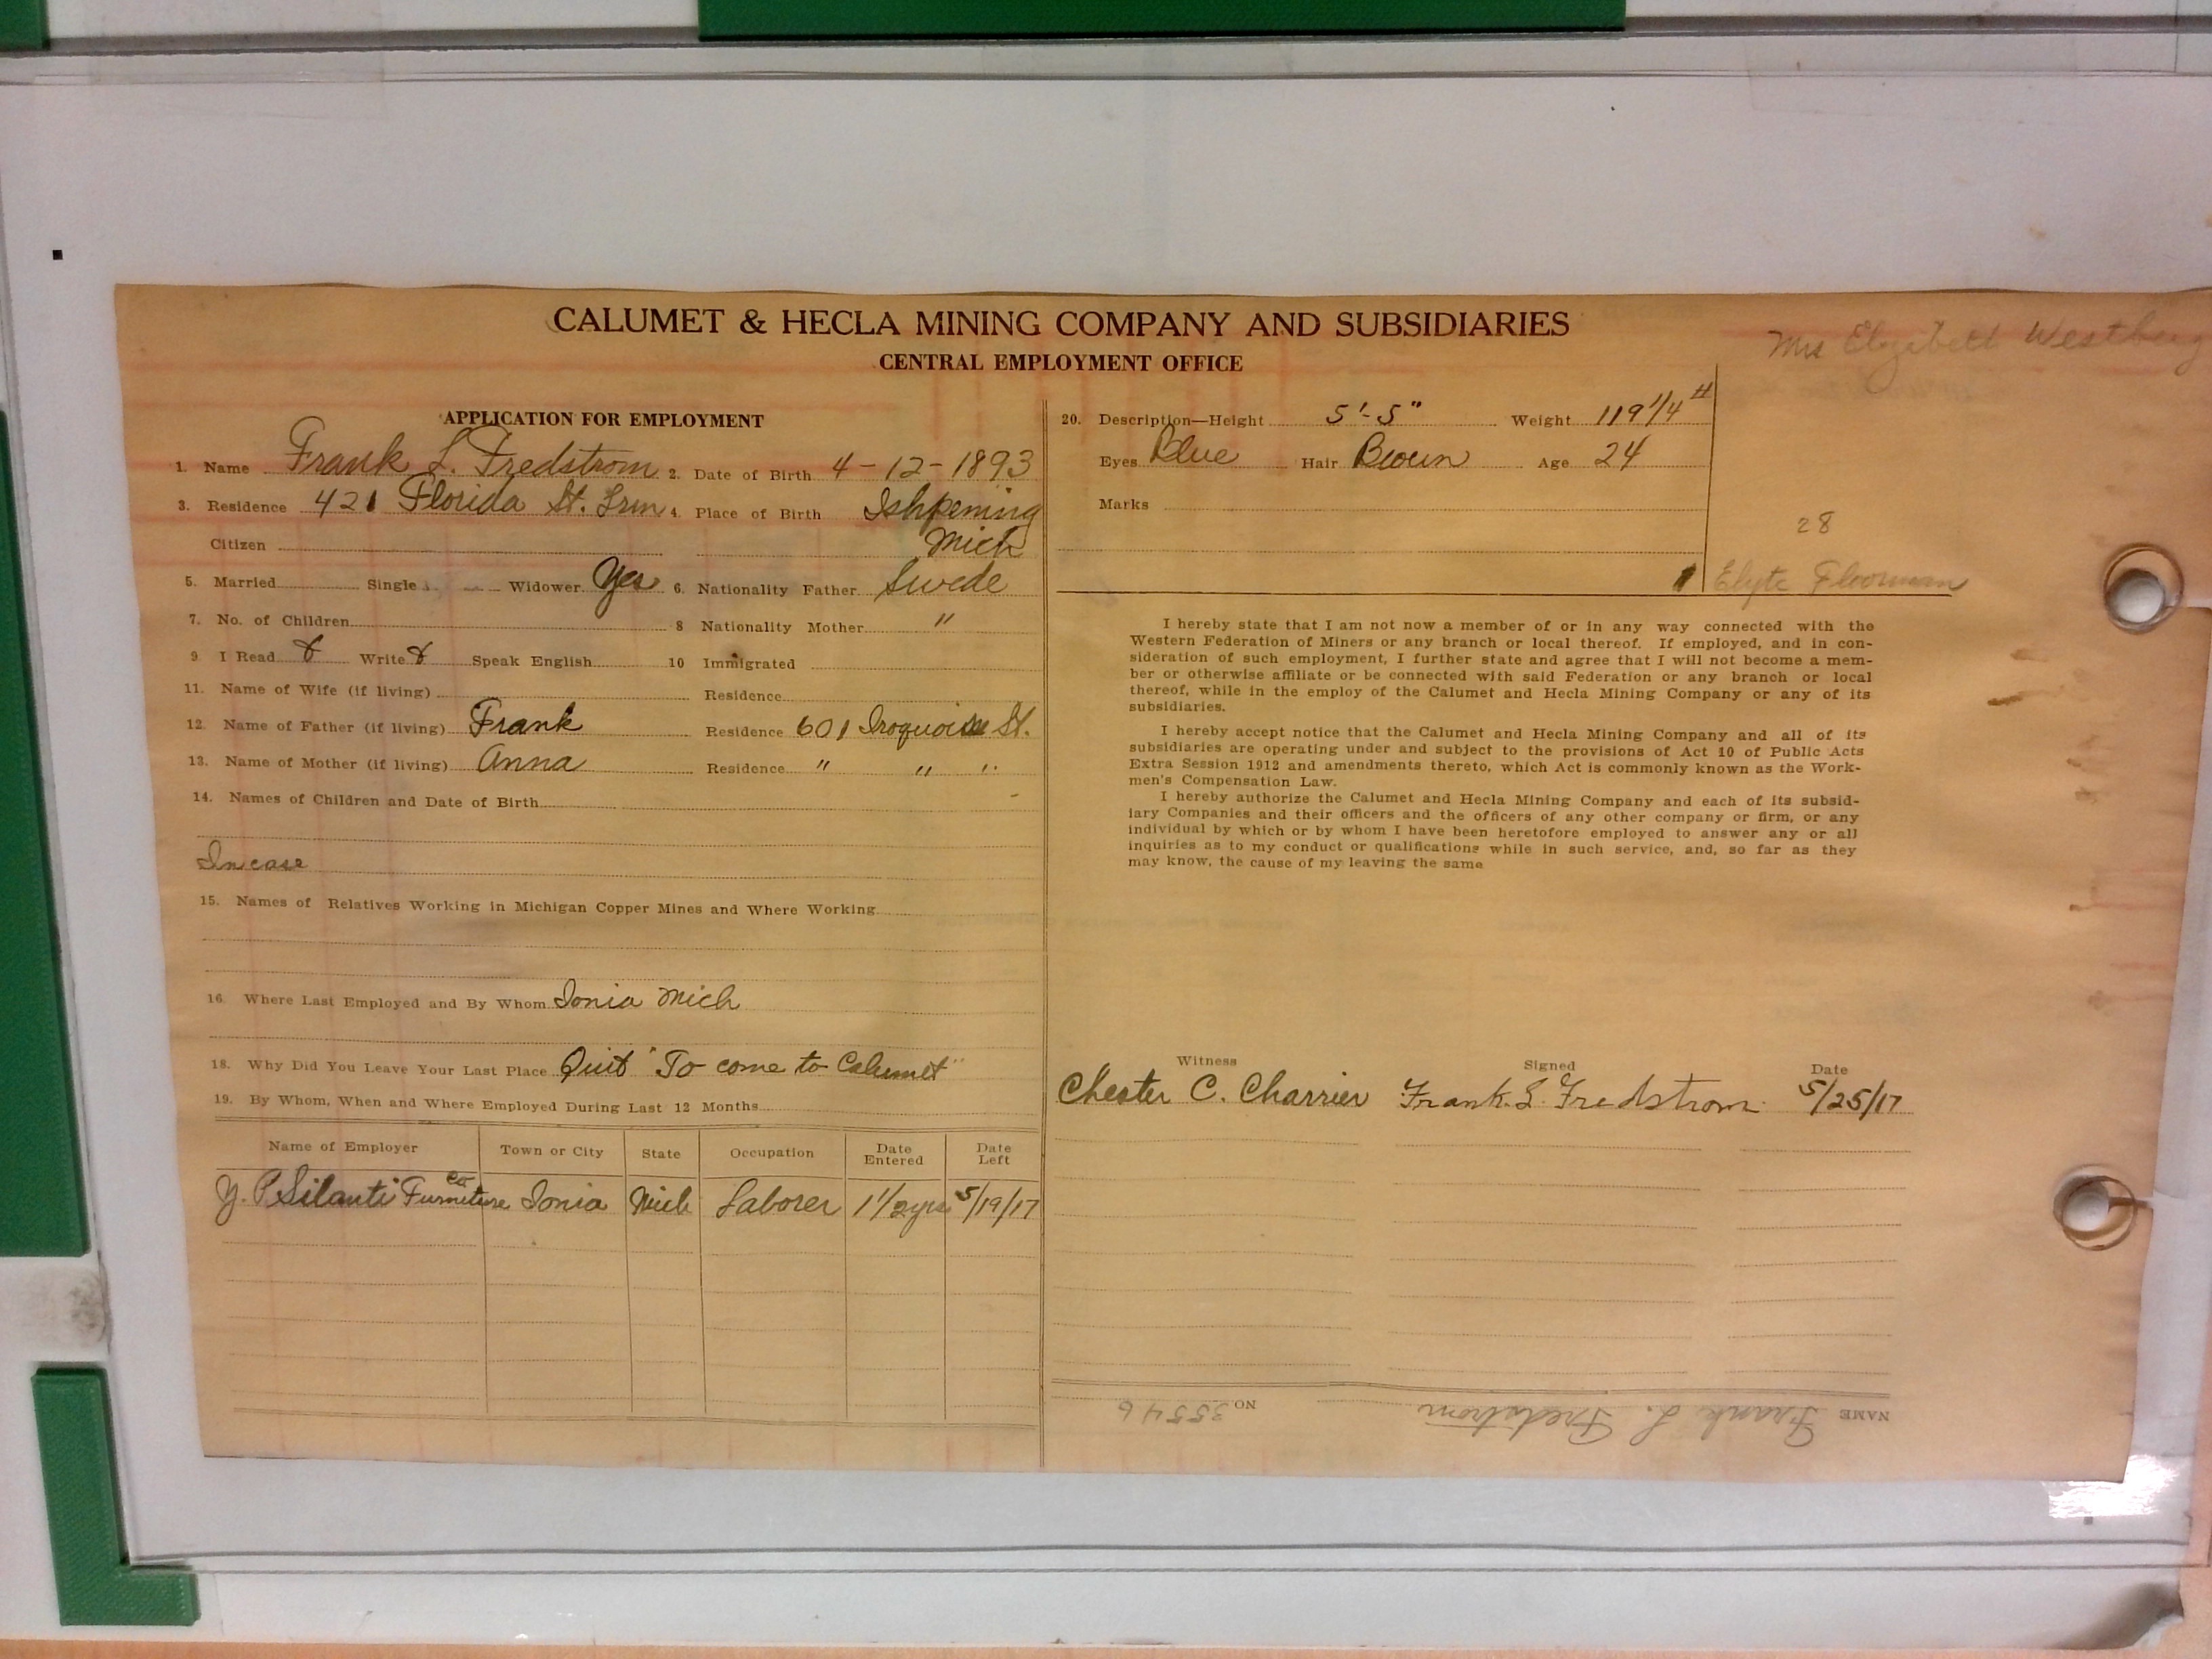 CALUMET & HECLA MINING COMPANY AND SUBSIDIARIES
CENTRAL EMPLOYMENT OFFICE
Mrs Elizabeth Westberg
APPLICATION FOR EMPLOYMENT
1. Name Frank L. Fredstrom 2. Date of Birth 4-12-1893
3. Residence 421 Florida St. Lrm 4. Place of Birth Ishpeming
Citizen Mich
5. Married Single Widower Yes 6. Nationality Father Swede
7. No. of Children 8 Nationality Mother "
9. I Read Write Speak English 10 Immigrated
11. Name of Wife (if living) Residence
12. Name of Father (if living) Frank Residence 601 Iroquois St.
13. Name of Mother (if living) Anna Residence " " "
14. Names of Children and Date of Birth
In case
15. Names of Relatives Working in Michigan Copper Mines and Where Working
16. Where Last Employed and By Whom Ionia Mich
18. Why Did You Leave Your Last Place Quit "To come to Calumet"
19. By Whom, When and Where Employed During Last 12 Months
Name of Employer Town or City State Occupation Date Entered Date Left
Y. P. Silanti Furniture Co Ionia Mich Laborer 1 1/2 yrs 5/19/17
20. Description—Height 5'-5" Weight 119 1/4 #
Eyes Blue Hair Brown Age 24
Marks
28
Elyte Floorman
I hereby state that I am not now a member of or in any way connected with the
Western Federation of Miners or any branch or local thereof. If employed, and in con-
sideration of such employment, I further state and agree that I will not become a mem-
ber or otherwise affiliate or be connected with said Federation or any branch or local
thereof, while in the employ of the Calumet and Hecla Mining Company or any of its
subsidiaries.
I hereby accept notice that the Calumet and Hecla Mining Company and all of its
subsidiaries are operating under and subject to the provisions of Act 10 of Public Acts
Extra Session 1912 and amendments thereto, which Act is commonly known as the Work-
men's Compensation Law.
I hereby authorize the Calumet and Hecla Mining Company and each of its subsid-
iary Companies and their officers and the officers of any other company or firm, or any
individual by which or by whom I have been heretofore employed to answer any or all
inquiries as to my conduct or qualifications while in such service, and, so far as they
may know, the cause of my leaving the same
Witness Signed Date
Chester C. Charrier Frank L. Fredstrom 5/25/17
NAME Frank L. Fredstrom NO 35546